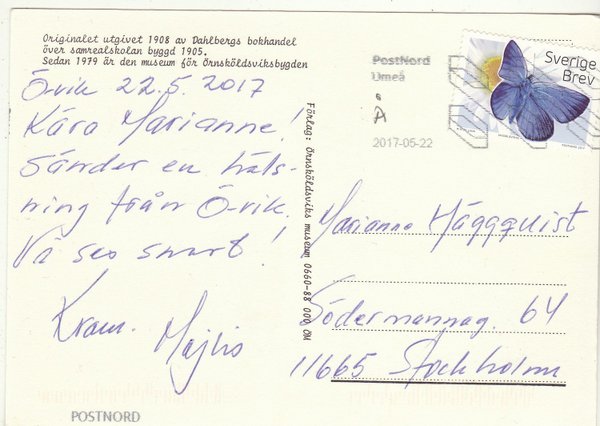 Originalet utgivet 1908 av Dahlbergs bokhandel
över samrealskolan byggd 1905.
Sedan 1979 är den museum för Örnsköldsviksbygden
Ö-vik 22.5. 2017
Kära Marianne!
Sänder en häls-
ning från Ö-vik.
Vi ses snart!
Kram. Majlis
POSTNORD
Förlag: Örnsköldsviks museum 0660-88 000 ÖM
PostNord
Umeå
A
2017-05-22
Sverige
Brev
Marianne Häggquist
Södermannag. 64
11665 Stockholm